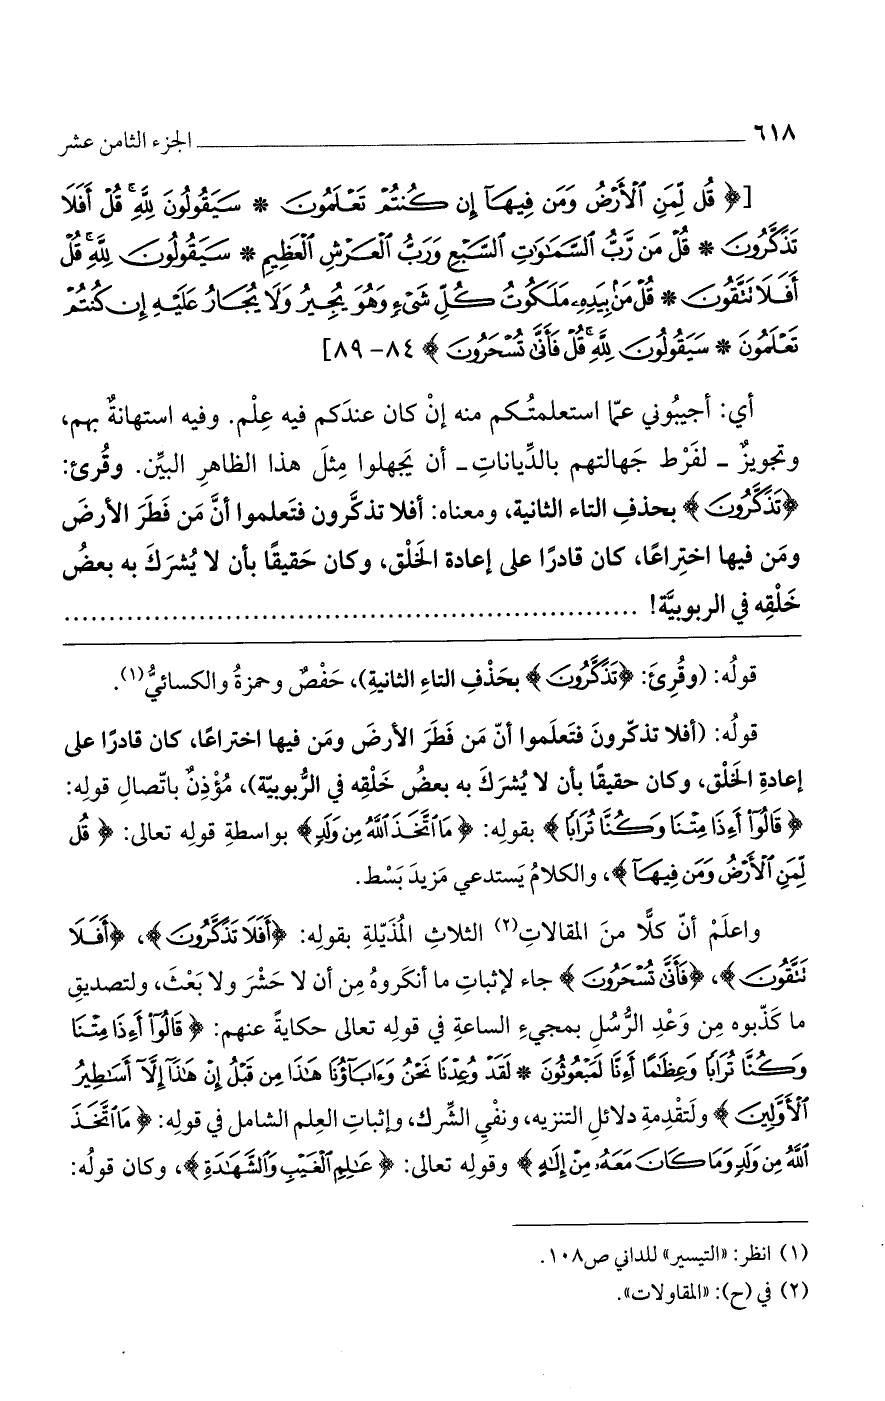 ٦١٨ ــــــــ الجزء الثامن عشر
[﴿ قُل لِّمَنِ ٱلْأَرْضُ وَمَن فِيهَآ إِن كُنتُمْ تَعْلَمُونَ * سَيَقُولُونَ لِلَّهِ ۚ قُلْ أَفَلَا
تَذَكَّرُونَ * قُلْ مَن رَّبُّ ٱلسَّمَٰوَٰتِ ٱلسَّبْعِ وَرَبُّ ٱلْعَرْشِ ٱلْعَظِيمِ * سَيَقُولُونَ لِلَّهِ ۚ قُلْ
أَفَلَا تَتَّقُونَ * قُلْ مَنۢ بِيَدِهِۦ مَلَكُوتُ كُلِّ شَىْءٍ وَهُوَ يُجِيرُ وَلَا يُجَارُ عَلَيْهِ إِن كُنتُمْ
تَعْلَمُونَ * سَيَقُولُونَ لِلَّهِ ۚ قُلْ فَأَنَّىٰ تُسْحَرُونَ ﴾ ٨٤ - ٨٩]
أي: أجيبُوني عمّا استعلمتُكم منه إنْ كان عندَكم فيه عِلْم. وفيه استهانةٌ بهم،
وتجويزٌ - لفَرْط جَهالتهم بالدِّياناتِ - أن يَجهلوا مِثلَ هذا الظاهرِ البيِّن. وقُرئ:
﴿تَذَكَّرُونَ﴾ بحذفِ التاء الثانية، ومعناه: أفلا تذكَّرون فتَعلموا أنَّ مَن فَطَرَ الأرضَ
ومَن فيها اختِراعًا، كان قادرًا على إعادة الخَلْق، وكان حَقيقًا بأن لا يُشرَكَ به بعضُ
خَلْقِه في الربوبيَّة! ................................................................
قولُه: (وقُرِئَ: ﴿تَذَكَّرُونَ﴾ بحَذْفِ التاءِ الثانيةِ)، حَفْصٌ وحمزةُ والكسائيُّ(١).
قولُه: (أفلا تذكّرونَ فتَعلَموا أنّ مَن فَطَرَ الأرضَ ومَن فيها اختراعًا، كان قادرًا على
إعادةِ الخَلْق، وكان حقيقًا بأن لا يُشرَكَ به بعضُ خَلْقِه في الرُّبوبيّة)، مُؤْذِنٌ باتّصالِ قولِه:
﴿ قَالُوٓا۟ أَءِذَا مِتْنَا وَكُنَّا تُرَابًا ﴾ بقولِه: ﴿ مَا ٱتَّخَذَ ٱللَّهُ مِن وَلَدٍ﴾ بواسطةِ قولِه تعالى: ﴿ قُل
لِّمَنِ ٱلْأَرْضُ وَمَن فِيهَآ ﴾، والكلامُ يَستدعي مَزيدَ بَسْط.
واعلَمْ أنّ كلًّا منَ المقالاتِ(٢) الثلاثِ المُذَيّلةِ بقولِه: ﴿أَفَلَا تَذَكَّرُونَ﴾، ﴿أَفَلَا
تَتَّقُونَ﴾، ﴿فَأَنَّىٰ تُسْحَرُونَ ﴾ جاء لإثباتِ ما أنكَروهُ مِن أن لا حَشْرَ ولا بَعْثَ، ولتصديقِ
ما كَذّبوه مِن وَعْدِ الرُّسُلِ بمجيءِ الساعةِ في قولِه تعالى حكايةً عنهم: ﴿ قَالُوٓا۟ أَءِذَا مِتْنَا
وَكُنَّا تُرَابًا وَعِظَٰمًا أَءِنَّا لَمَبْعُوثُونَ * لَقَدْ وُعِدْنَا نَحْنُ وَءَابَآؤُنَا هَٰذَا مِن قَبْلُ إِنْ هَٰذَآ إِلَّآ أَسَٰطِيرُ
ٱلْأَوَّلِينَ ﴾ ولتَقْدِمةِ دلائلِ التنزيه، ونفْيِ الشِّرك، وإثباتِ العِلم الشامل في قولِه: ﴿ مَا ٱتَّخَذَ
ٱللَّهُ مِن وَلَدٍ وَمَا كَانَ مَعَهُۥ مِنْ إِلَٰهٍ ﴾ وقولِه تعالى: ﴿ عَٰلِمِ ٱلْغَيْبِ وَٱلشَّهَٰدَةِ ﴾، وكان قولُه:
(١) انظر: «التيسير» للداني ص١٠٨.
(٢) في (ح): «المقاولات».